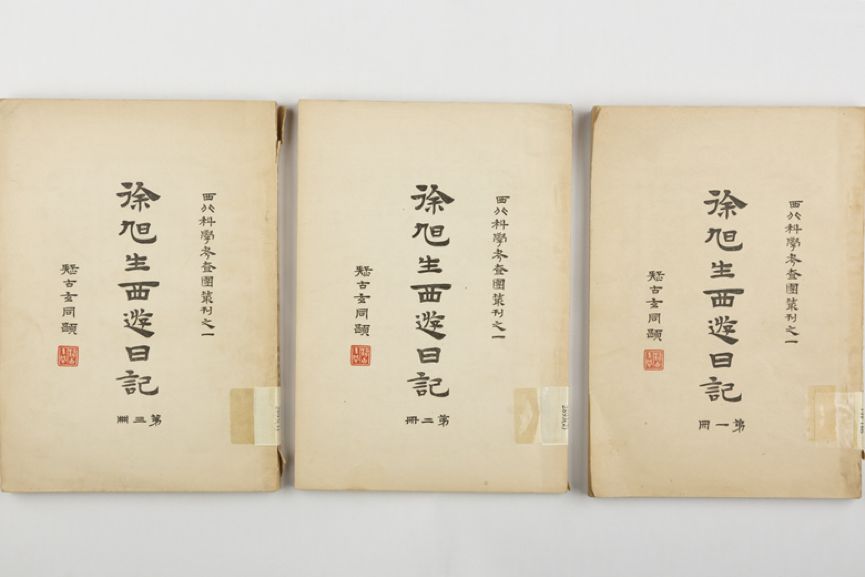 西北科學考查團叢刊之一
徐旭生西遊日記
第一冊
疑古玄同題
西北科學考查團叢刊之一
徐旭生西遊日記
第二冊
疑古玄同題
西北科學考查團叢刊之一
徐旭生西遊日記
第三冊
疑古玄同題